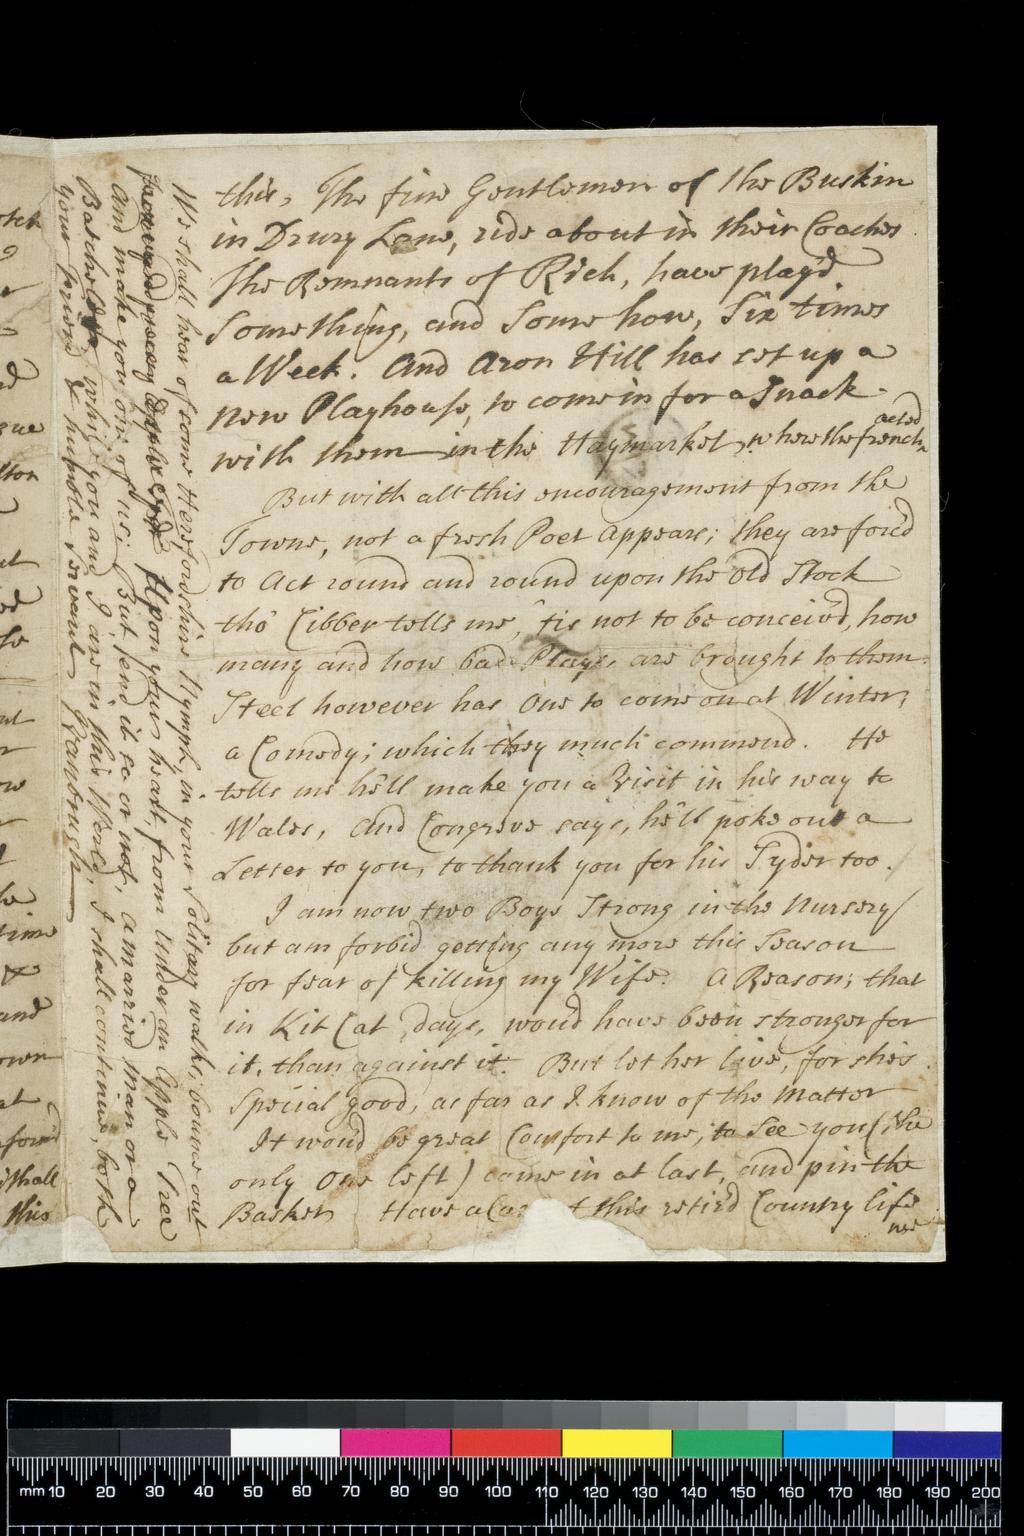 this, The fine Gentlemen of the Buskin
in Drury Lane, ride about in their Coaches.
The Remnants of Rich, have play'd
Something, and Some how, Six times
a Week. And Aron Hill has set up a
new Playhouse, to come in for a Snack
with them in the Haymarket, where the french
acted
But with all this encouragement from the
Towne, not a fresh Poet Appears; they are forc'd
to Act round and round upon the Old Stock
tho' Cibber tells me, 'tis not to be conceiv'd, how
many and how bad Plays, are brought to them.
Steel however has One to come on at Winter,
a Comedy; which they much commend. He
tells me he'll make you a Visit in his way to
Wales, And Congreve says, he'll poke out a
Letter to you, to thank you for his Syder too.
I am now two Boys Strong in the Nursery
but am forbid getting any more this Season
for fear of killing my Wife. A Reason; that
in Kit Cat days, wou'd have been stronger for
it, than against it. But let her live, for she's
Special good, as far as I know of the Matter
It wou'd be great Comfort to me, to See you (the
only One left) come in at last, and pin the
Basket. Have a Car t this retir'd Country life
We shall hear of some Herefordshire Nymph, in your Solitary walks, bounce out
Upon your heart, from Under an Apple Tree
And make you one of us; But send it so or not, a married man or a
Batcheldr, whi you and I are in this World, I shall continue, both
your friend & humble Servant Vanbrugh
otch
gue
lton
nd
time
and
own
at
forc'd
shall
this
mm 10 20 30 40 50 60 70 80 90 100 110 120 130 140 150 160 170 180 190 200